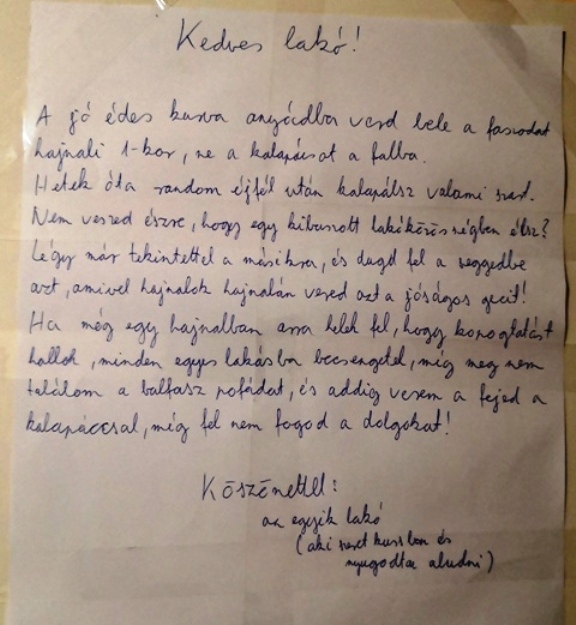 Kedves lakó!
A jó édes kurva anyádba verd bele a faszodat
hajnali 1-kor, ne a kalapácsot a falba.
Hetek óta random éjfél után kalapálsz valami szart.
Nem veszed észre, hogy egy kibaszott lakóközösségben élsz?
Légy már tekintettel a másikra, és dugd fel a seggedbe
azt, amivel hajnalok hajnalán vered azt a jóságos gecit!
Ha még egy hajnalban arra kelek fel, hogy kopogtatást
hallok, minden egyes lakásba becsengetek, míg meg nem
találom a balfasz pofádat, és addig verem a fejed a
kalapáccsal, míg fel nem fogod a dolgokat!
Köszönettel:
az egyik lakó
(aki szeret kussban és
nyugodtan aludni)